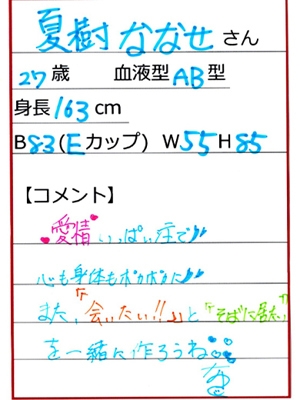 夏樹ななせさん
27歳 血液型AB型
身長163cm
B83(Eカップ) W55H85
【コメント】
愛情いっぱい症で♪
心も身体もポカポカに♪
また、「会いたい!!」と「そばに居たい」
を一緒に作ろうね